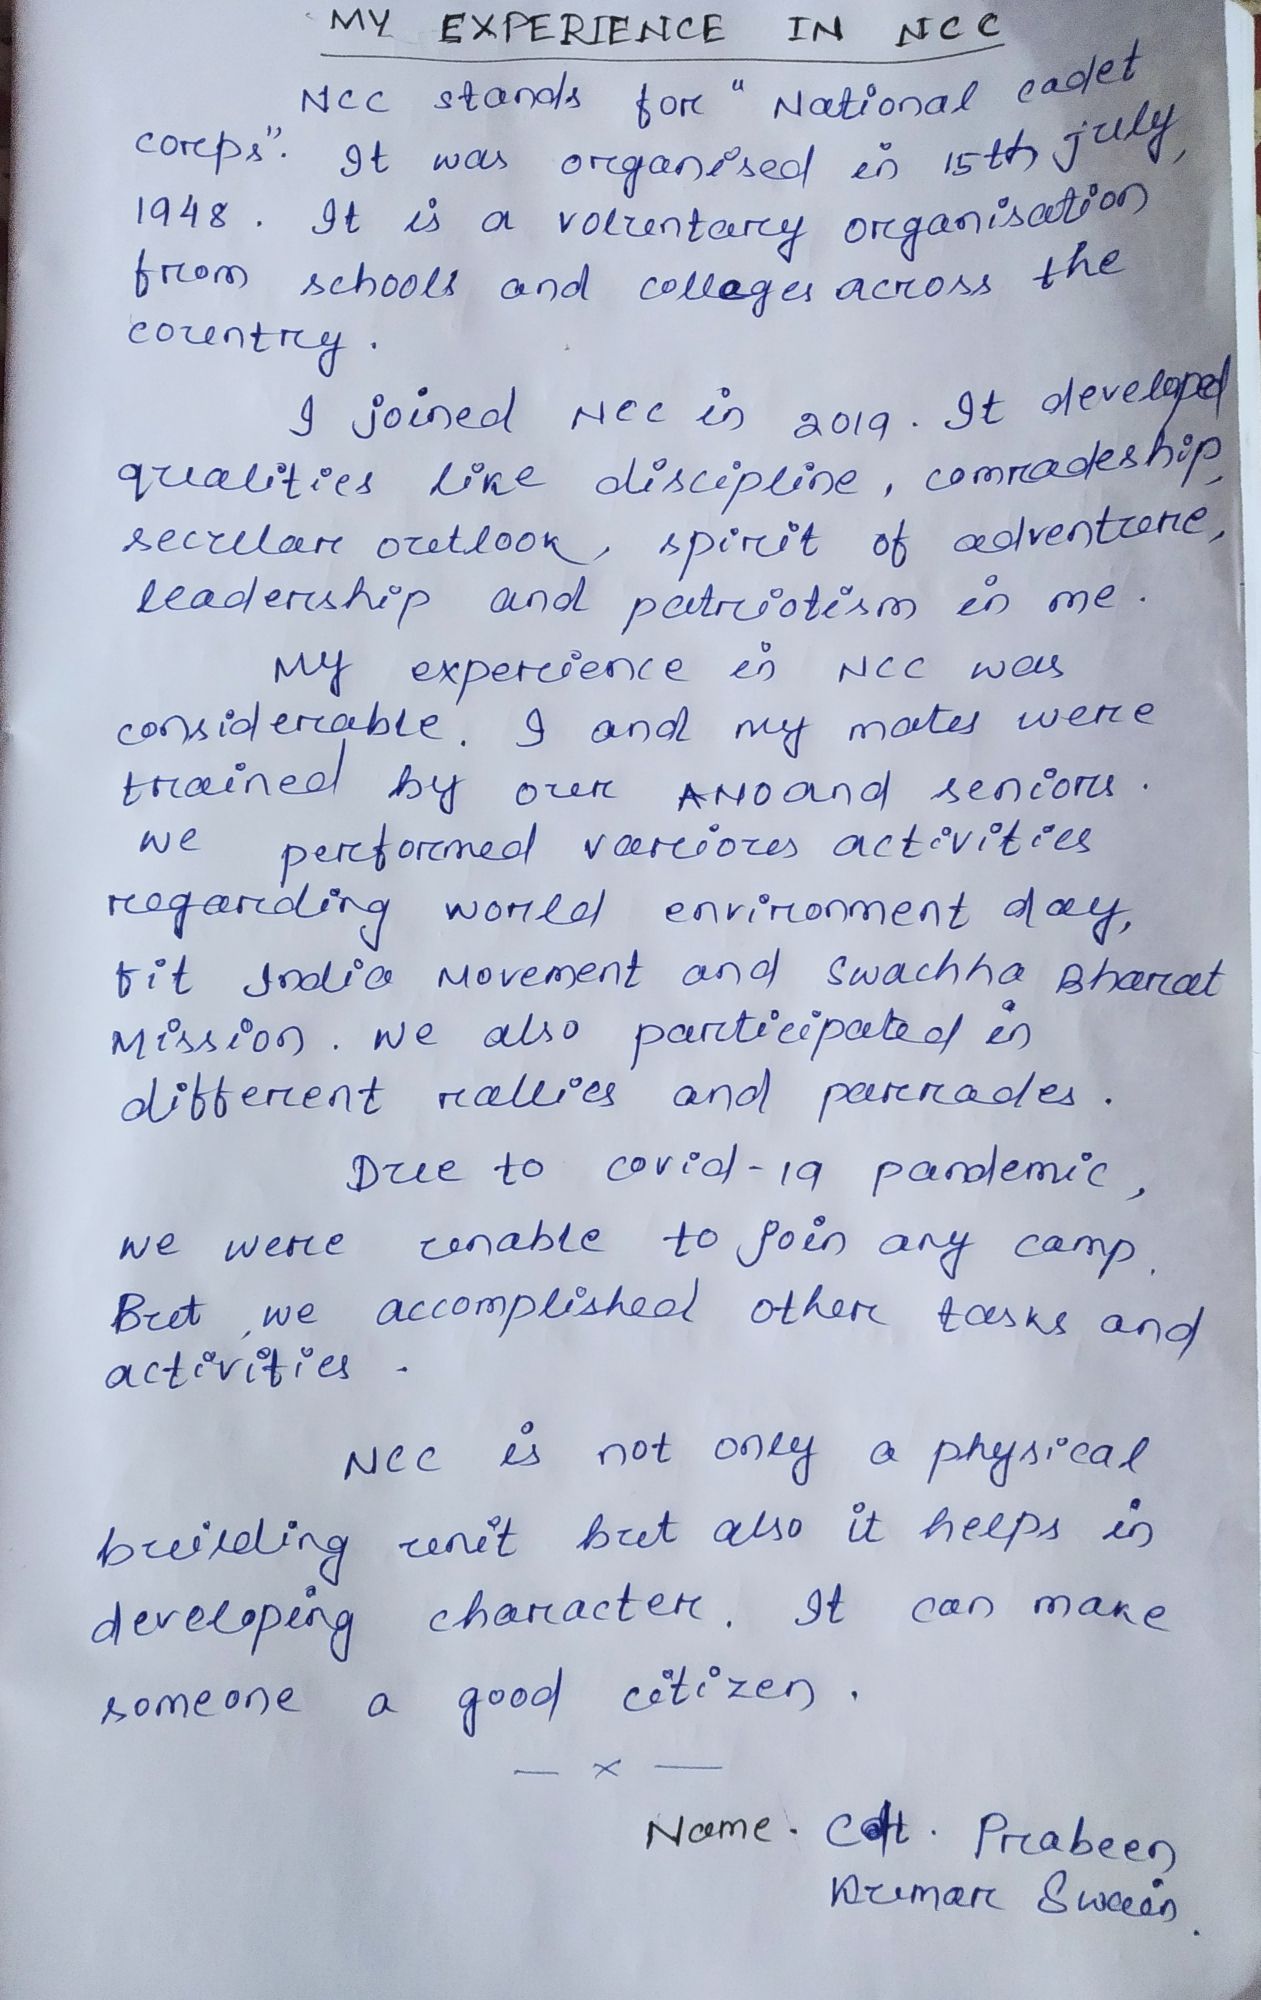 MY EXPERIENCE IN NCC
NCC stands for "National cadet
corps". It was organised in 15th july,
1948. It is a voluntary organisation
from schools and colleges across the
country.
I joined NCC in 2019. It developed
qualities like discipline, comradeship,
secular outlook, spirit of adventure,
leadership and patriotism in me.
My experience in NCC was
considerable. I and my mates were
trained by our ANO and seniors.
We performed various activities
regarding world environment day,
Fit India Movement and Swachha Bharat
Mission. We also participated in
different rallies and parrades.
Due to covid-19 pandemic,
we were unable to join any camp.
But, we accomplished other tasks and
activities.
NCC is not only a physical
building unit but also it helps in
developing character. It can make
someone a good citizen.
— x —
Name. Cdt. Prabeen
Kumar Swain.